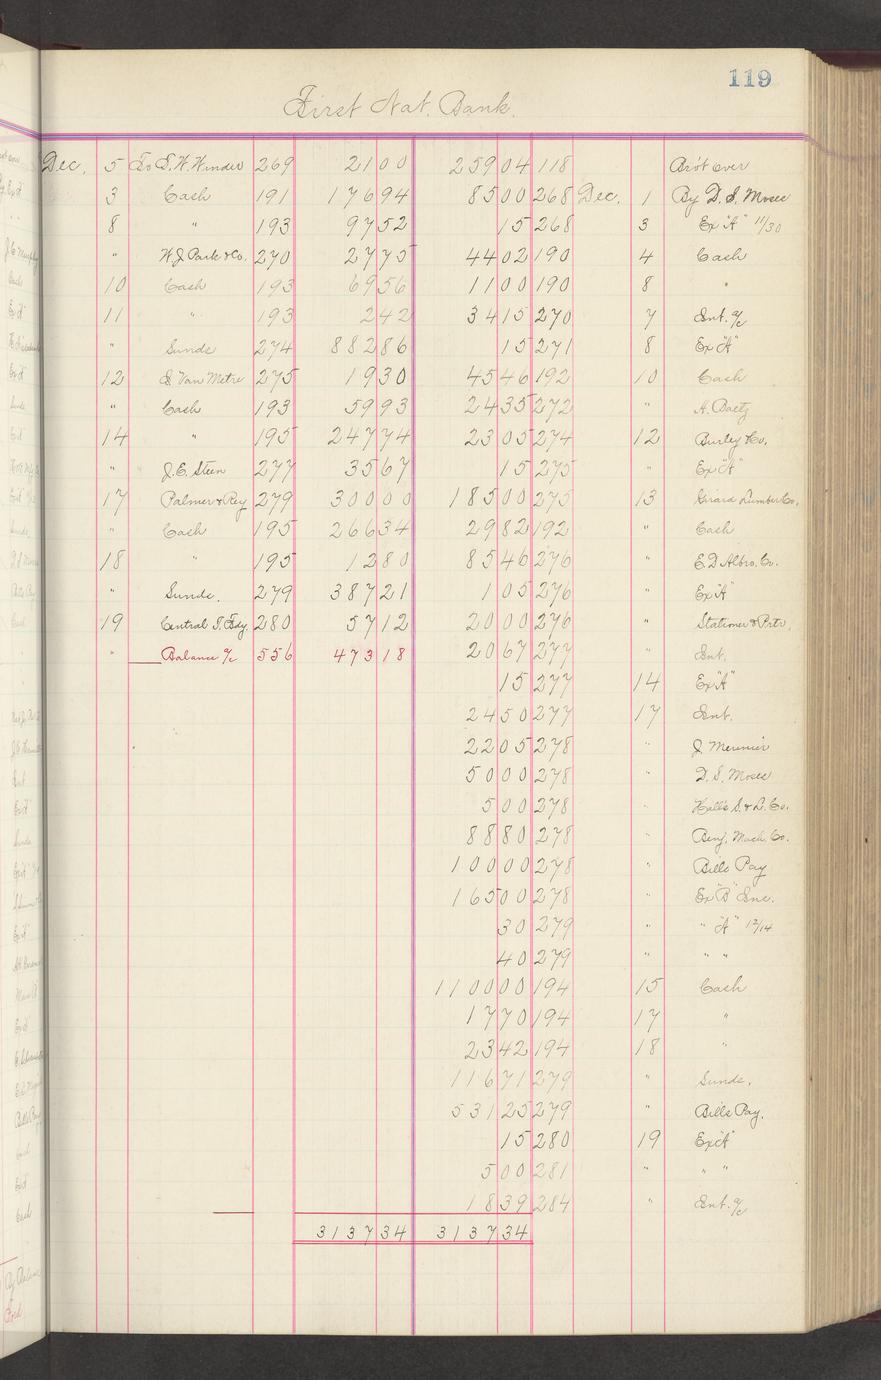 119
First Nat. Bank.
Dec. 5 To S. W. Winder 269 21 00 259 04 118 Bro't over
3 Cash 191 176 94 85 00 268 Dec. 1 By D. S. Moses
8 " 193 97 52 15 268 3 Ex "A" 11/30
" W. J. Park & Co. 270 27 75 44 02 190 4 Cash
10 Cash 193 69 56 11 00 190 8 "
11 " 193 2 42 34 15 270 7 Int. a/c
" Sunds 274 882 86 15 271 8 Ex "A"
12 S. Van Metre 275 19 30 45 46 192 10 Cash
" Cash 193 59 93 24 35 272 " A. Baetz
14 " 195 247 74 23 05 274 12 Burley & Co.
" J. E. Steen 277 35 67 15 275 " Ex "A"
17 Palmer & Rey 279 300 00 185 00 275 13 Girard Lumber Co.
" Cash 195 266 34 29 82 192 " Cash
18 " 195 12 80 85 46 276 " E. D. Albro. Co.
" Sunds. 279 387 21 1 05 276 " Ex "A"
19 Central T. Fdy. 280 57 12 20 00 276 " Stationer & Prtr.
" Balance a/c 556 473 18 20 67 277 " Int.
15 277 14 Ex "A"
24 50 277 17 Int.
22 05 278 " J. Meunier
50 00 278 " D. S. Moses
5 00 278 " Hall's S. & L. Co.
88 80 278 " Benj. Mach. Co.
100 00 278 " Bills Pay
165 00 278 " Ex "B" Inc.
30 279 " " "A" 12/14
40 279 " " "
1100 00 194 15 Cash
17 70 194 17 "
23 42 194 18 "
116 71 279 " Sunds.
531 25 279 " Bills Pay.
15 280 19 Ex "A"
5 00 281 " " "
18 39 284 " Int. a/c
3137 34 3137 34